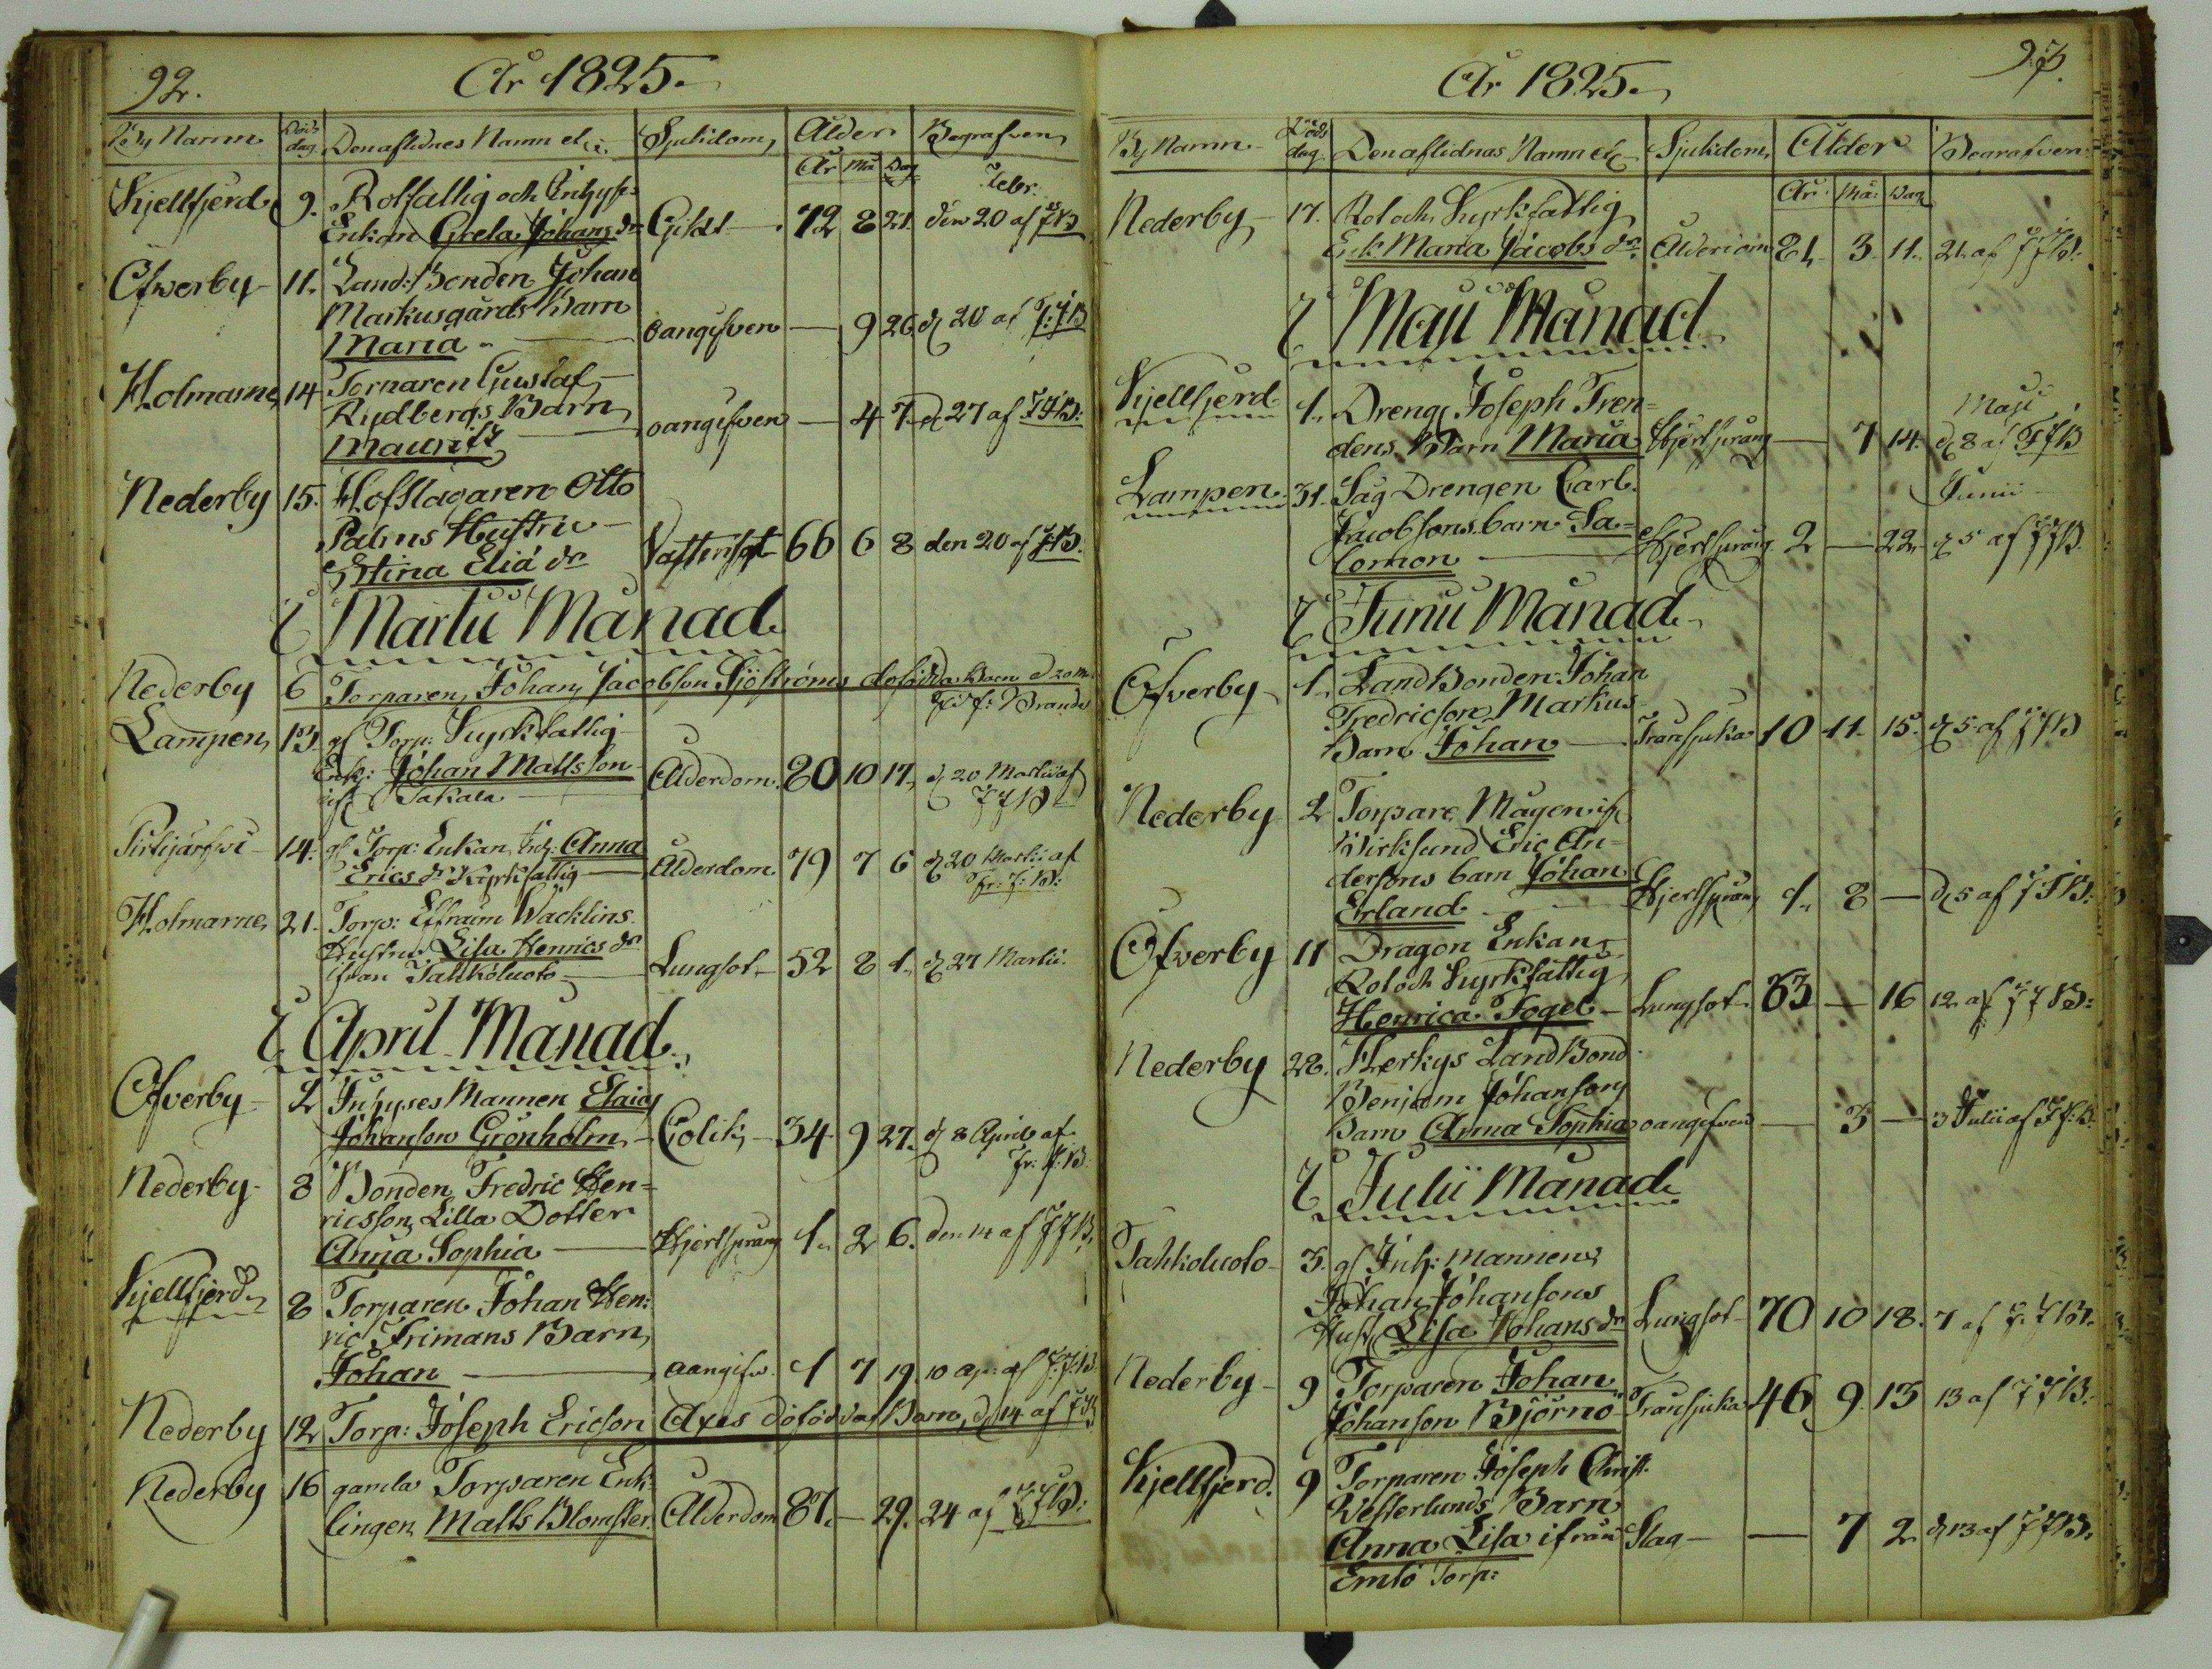 92.
År 1825.
By Namn Döds dag Den aflidnes Namn etc. Sjukdom, Ålder Begrafven
År Må Dag
Febr.
Kjellfjerd 9. Rotfattig och Inhyses
Enkan Grela Johans dr Gikt 72 8 21. den 20 af FJB
Öfwerby 11. Land: Bonden Johan
Markusgårds Barn
Maria oangifven — 9 26 d 20 af F:J:B
Holmarne 14 Tornaren Gustaf
Rydbergs Barn
Mauritz oangifven — 4 7. d 27 af FJB:
Nederby 15. Hofslagaren Otto
Palms Hustru
Stina Eliæ dr Vattensot 66 6 8 den 20 af FJB.
I Martii Månad
Nederby 6 Torparen Johan Jacobson Sjöströms dofödda Barn d 20 M.
af F: Brander
Lampen, 13. gl Torp: Kyrkfattig
Enk: Johan Matsson Ålderdom. 80 10 17, d 20 Martii af
Takala FJB
14. gl Torp: Enkan, Anna
Erics dr Kyrkfattig Ålderdom 79 7 6 d 20 Martii af
Fr: J: B:
Holmarne, 21. Torp: Effraim Wacklins
Hustru Lisa Henrics dr
ifrån Tahkoluoto Lungsot 52 8 1. d 27 Martii.
I April Månad
Öfverby 2 Inhyses Mannen Elaias
Johanson Grönholm, Colik, 34 9 27. d 8 April af
Fr: J:B.
Nederby 8 Bonden Fredric Hen=
ricsson, Lilla Dotter
Anna Sophia Hjertsprång 1. 2 6. den 14 af FJB.
Kjellfjerd 8 Torparen Johan Hen:
ric Frimans Barn,
Johan oangifv. 1 7 19. 10 Ap: af F.J.B.
Nederby 12 Torp: Joseph Ericson Axes dofödda Barn, d 14 af FJB
Nederby 16 gamla Torparen Enk:
lingen Matts Blomster. Ålderdom 81. — 29. 24 af FJB:
93.
År 1825.
By Namn Döds dag. Den aflidnas Namn etc Sjukdom, Ålder Begrafven:
År. Må: Dag
Nederby 17. Rot och Kyrkfattig
Enk: Maria Jacobs dr. Ålderdom 81 3 11. 21 af FJB:
I Maji Månad
Kjellfjerd 1. Dreng Joseph Tren=
Maji
dens Barn Maria Hjertsprång — 7 14. d 8 af FJB
Lampen 31. Såg Drengen Carl
Junii
Jacobsons barn Sa=
lomon Hjertsprång 2 — 22. d 5 af FJB.
I Junii Månad
Öfverby 1. LandBonden Johan
Fredricson Markus
Barn Johan Tränsjuka 10 11. 15. d 5 af FJB
Nederby 2 Torpare Mågen
Wirksund Eric An=
dersons barn Johan
Erland Hjertsprång 1. 8 — d 5 af FJB:
Öfwerby 11 Dragon Enkan
Rot och Kyrkfattig
Henrica Fogel Lungsot 63 — 16 12 af FJB:
Nederby 22. Herkys LandBond
Benjam Johansons
Barn Anna Sophia oangifven — 3 — 3 Julii af FJ:B.
I Julii Månad
Tahkoluoto 3. gl Inh: Mannens
Johan Johansons
Hust, Lisa Johans dr Lungsot 70 10 18. 7 af F.J.B.
Nederby 9 Torparen Johan
Johanson Björno Tränsjuka 46 9. 13 13 af FJB:
Kjellfjerd. 9 Torparen Joseph Christ.
Westerlunds Barn
Anna Lisa ifrån Slag — 7 2 d 13 af FJB.
Emlö Torp: